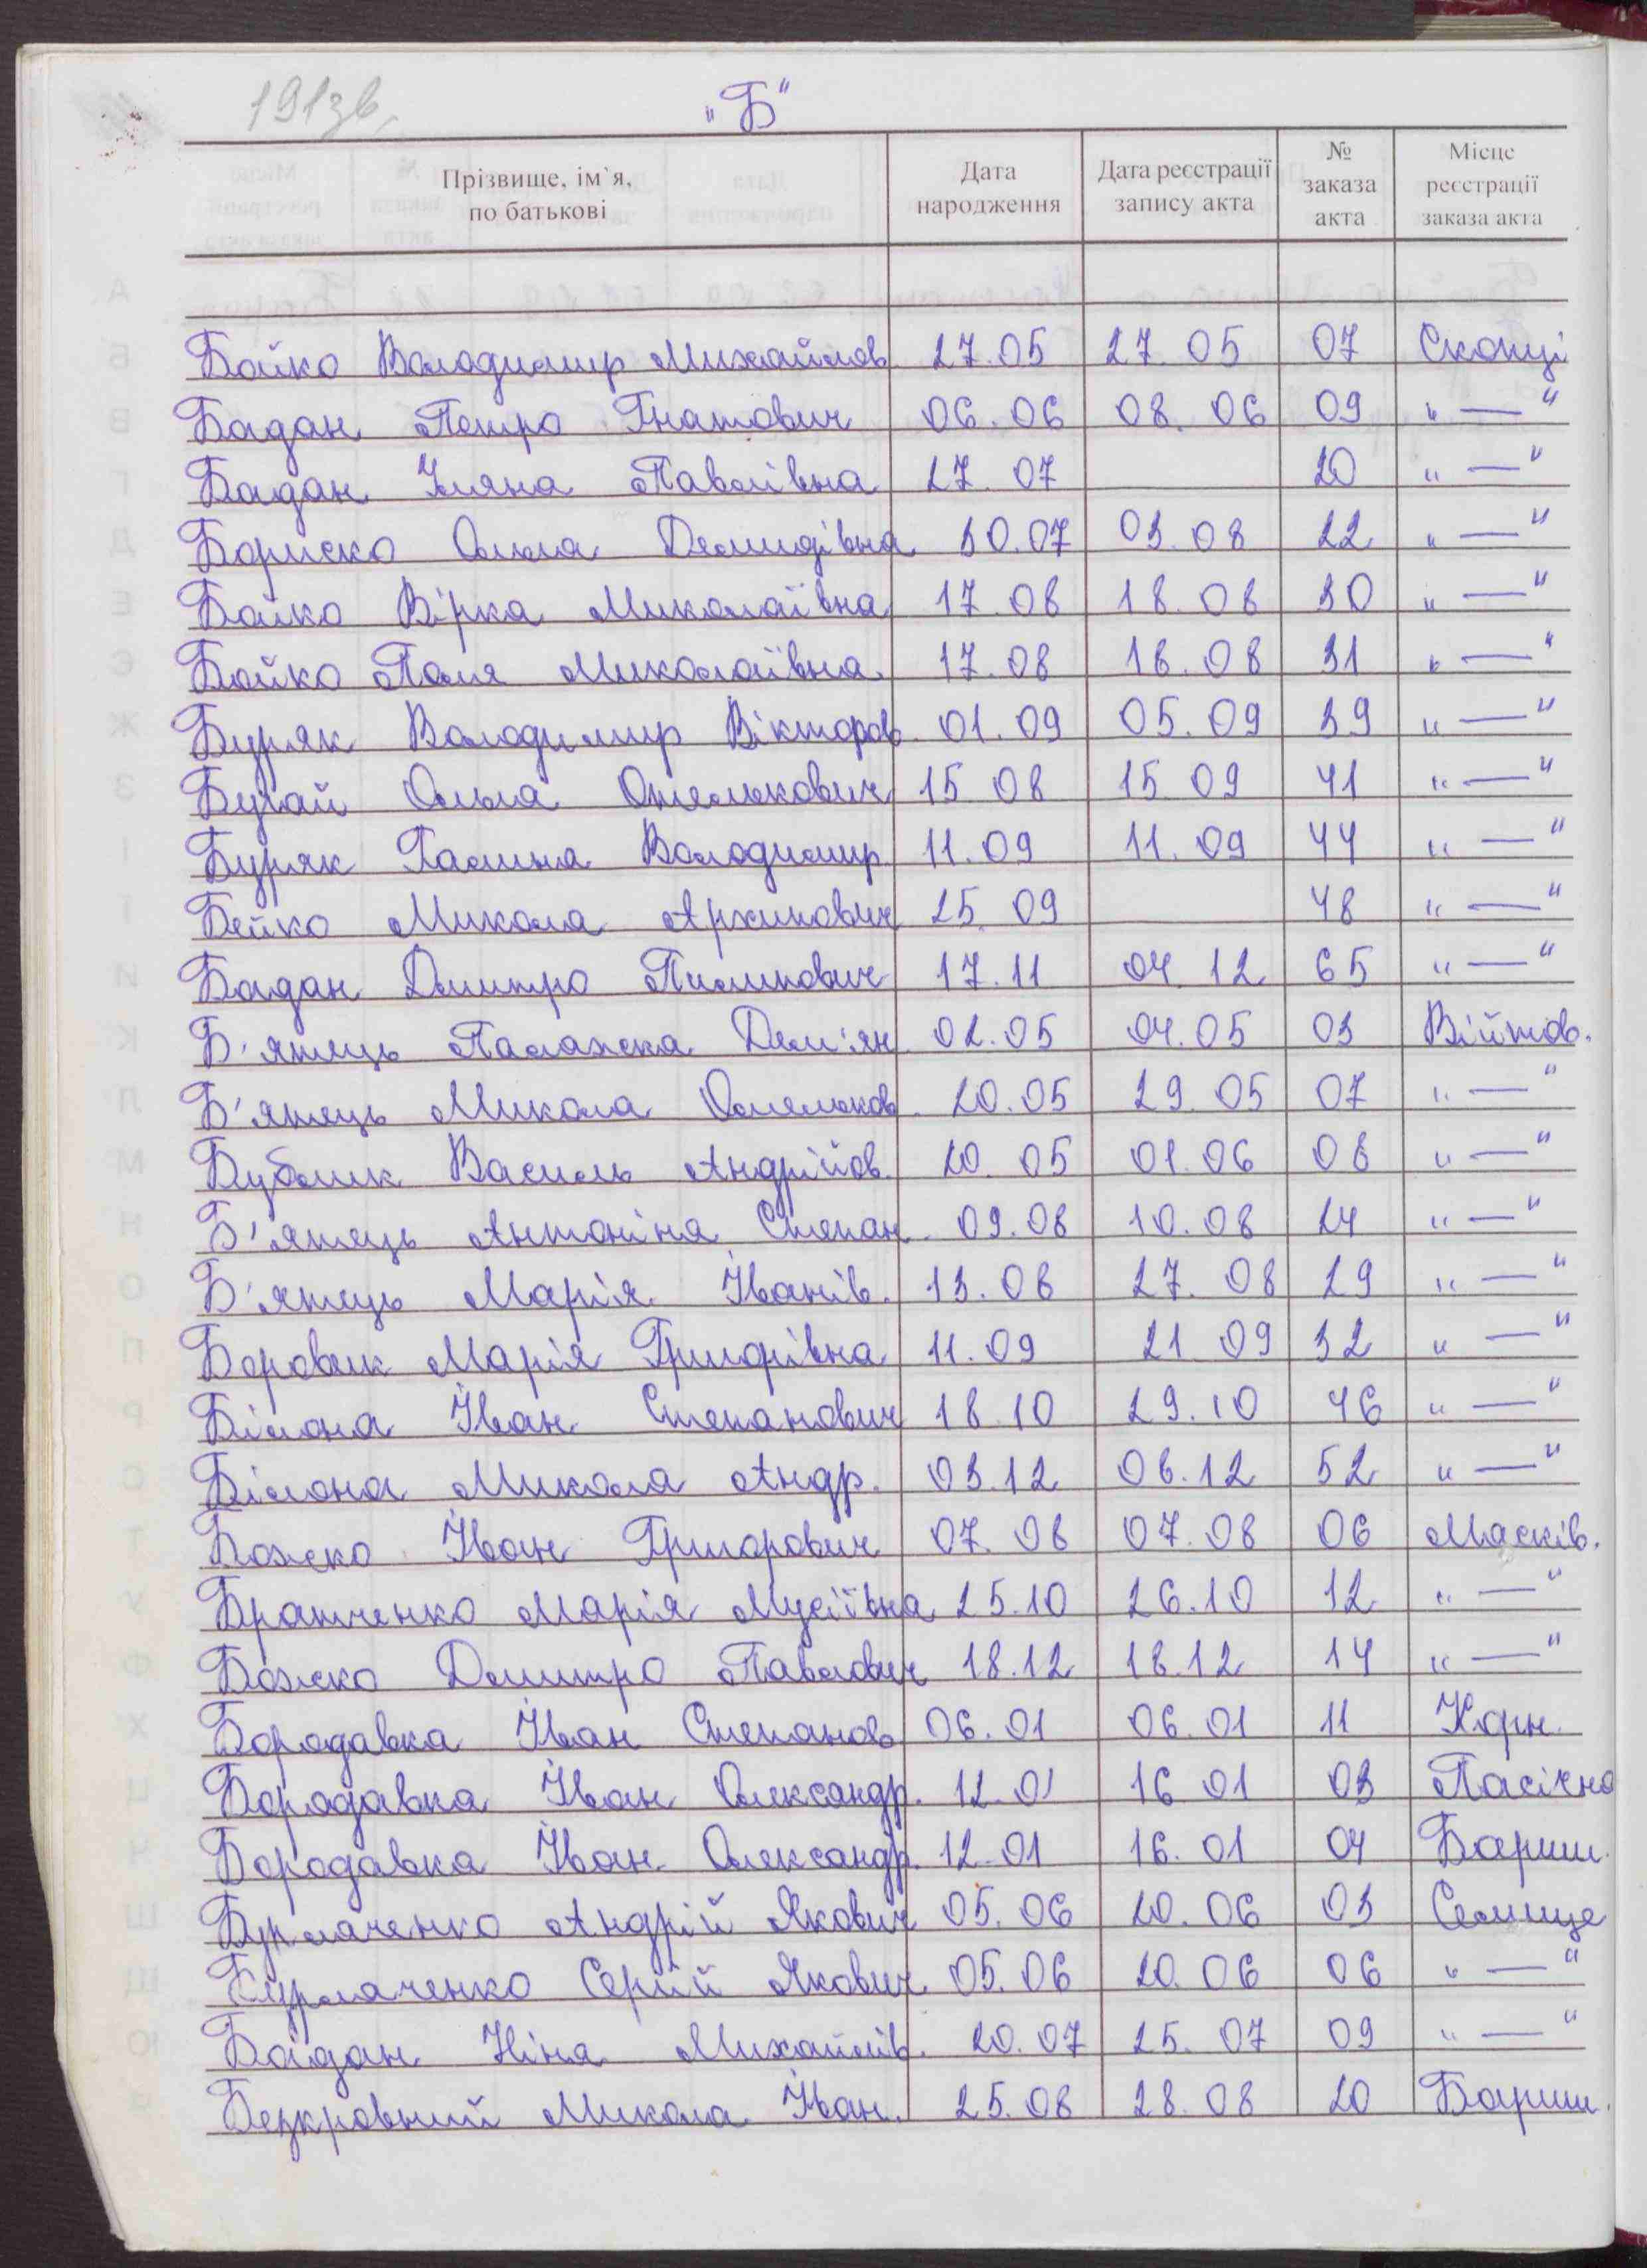 191зв.
"Б"
Прізвище, ім`я, по батькові | Дата народження | Дата реєстрації запису акта | № заказа акта | Місце реєстрації заказа акта
Бойко Володимир Михайлов. 27.05 27.05 07 Скопці
Бадан Петро Гнатович 06.06 08.06 09 " — "
Бадан Уляна Павлівна 27.07 20 " — "
Бориско Ольга Демидівна 30.07 03.08 22 " — "
Бойко Вірка Миколаївна 17.08 18.08 30 " — "
Бойко Поля Миколаївна 17.08 18.08 31 " — "
Буряк Володимир Вікторов. 01.09 05.09 39 " — "
Бугай Ольга Омелькович 15 08 15 09 41 " — "
Буряк Галина Володимир. 11.09 11.09 44 " — "
Бейко Микола Архипович 25.09 48 " — "
Бадан Дмитро Пилипович 17.11 04.12 65 " — "
Б'ятець Палажка Дем'ян. 02.05 04.05 03 Війтов.
Б'ятець Микола Омельков. 20.05 29.05 07 " — "
Бублик Василь Андрійов. 20.05 01.06 08 " — "
Б'ятець Антоніна Степан. 09.08 10.08 24 " — "
Б'ятець Марія Іванів. 13.08 27.08 29 " — "
Боровик Марія Григорівна 11.09 21 09 32 " — "
Білона Іван Степанович 18.10 29.10 46 " — "
Білона Микола Андр. 03.12 06.12 52 " — "
Божко Іван Григорович 07.08 07.08 06 Масків.
Братченко Марія Мусіївна 25.10 26.10 12 " — "
Божко Дмитро Павлович 18.12 18.12 14 " — "
Бородавка Іван Степанов. 06.01 06.01 11 Корн.
Бородавка Іван Олександр. 12.01 16 01 03 Пасічна
Бородавка Іван Олександр. 12.01 16.01 04 Бариш.
Бурлаченко Андрій Якович 05.06 20.06 03 Селище
Бурлаченко Сергій Якович 05.06 20.06 06 " — "
Байдан Ніна Михайлів. 20.07 25.07 09 " — "
Безкровний Микола Іван. 25.08 28.08 20 Бариш.